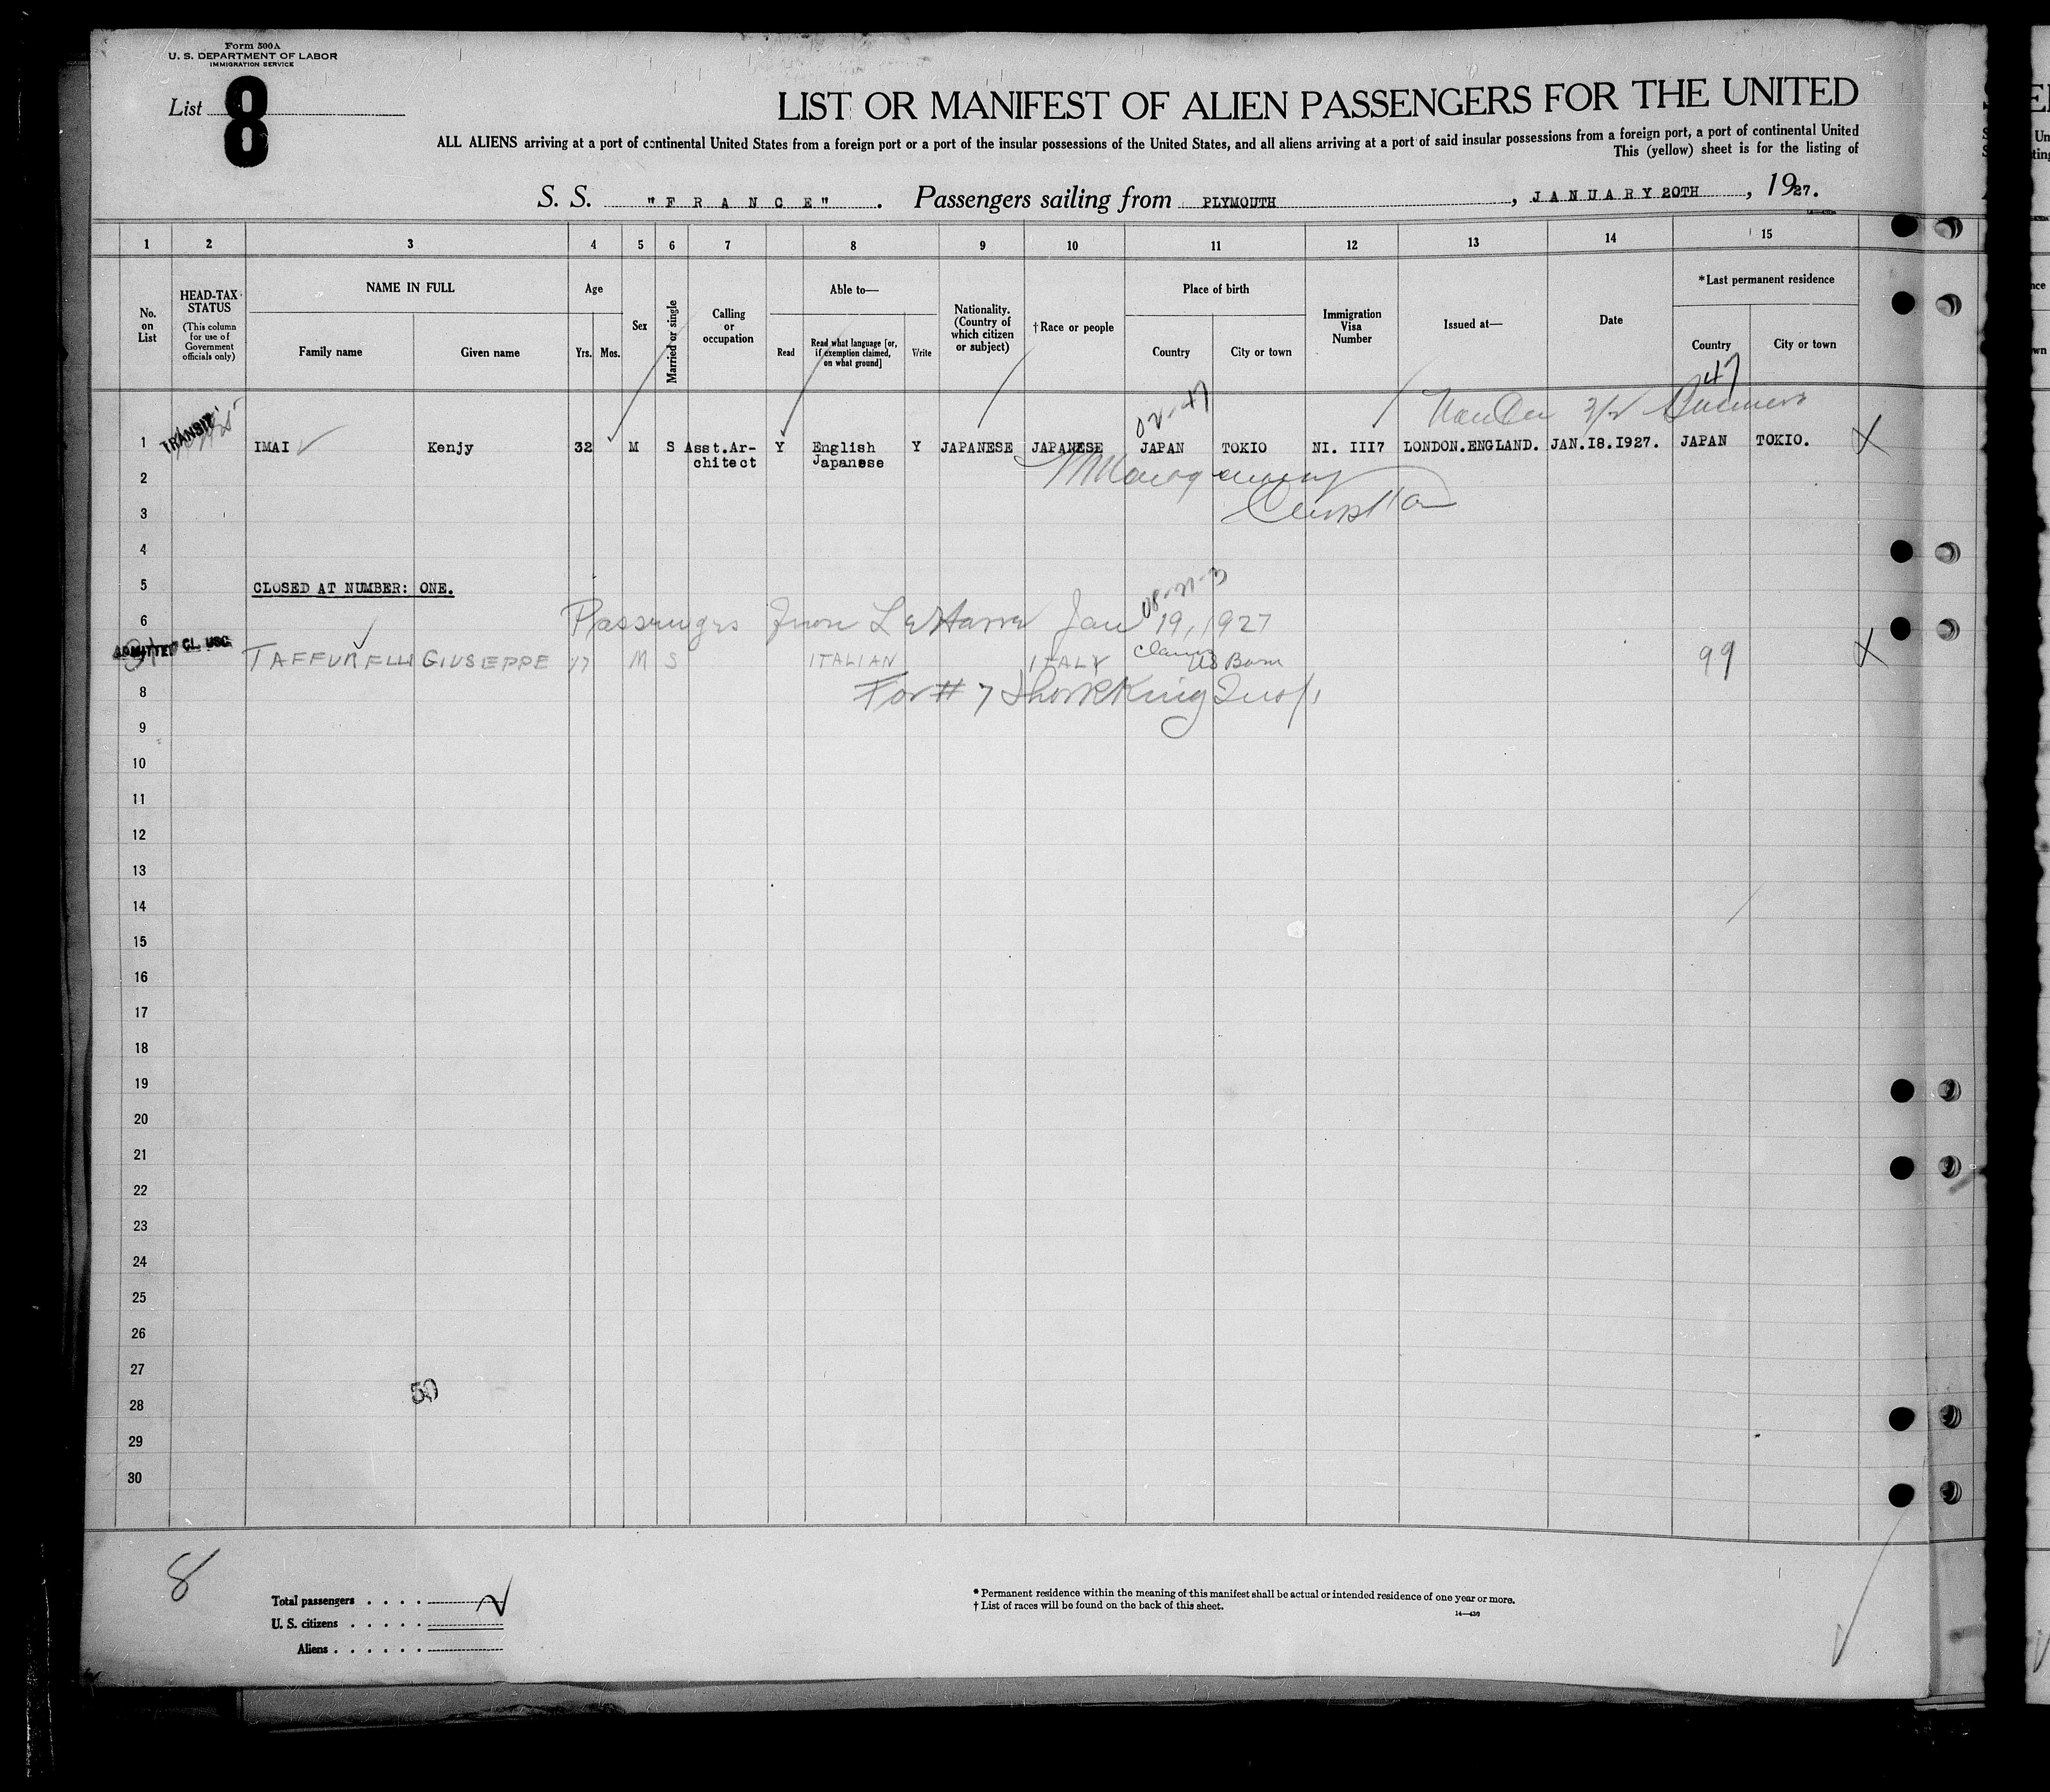 Form 500A
U. S. DEPARTMENT OF LABOR
IMMIGRATION SERVICE
List 8
LIST OR MANIFEST OF ALIEN PASSENGERS FOR THE UNITED
ALL ALIENS arriving at a port of continental United States from a foreign port or a port of the insular possessions of the United States, and all aliens arriving at a port of said insular possessions from a foreign port, a port of continental United
This (yellow) sheet is for the listing of
S. S. "F R A N C E" . Passengers sailing from PLYMOUTH , J A N U A R Y 20TH , 1927.
1 2 3 4 5 6 7 8 9 10 11 12 13 14 15
No. on List
HEAD-TAX STATUS
(This column for use of Government officials only)
NAME IN FULL
Family name
Given name
Age
Yrs. Mos.
Sex
Married or single
Calling or occupation
Able to—
Read
Read what language [or, if exemption claimed, on what ground]
Write
Nationality. (Country of which citizen or subject)
† Race or people
Place of birth
Country
City or town
Immigration Visa Number
Issued at—
Date
*Last permanent residence
Country
City or town
47
02-47
1 TRANSIT IMAI Kenjy 32 M S Asst.Ar- Y English Y JAPANESE JAPANESE JAPAN TOKIO NI. III7 LONDON.ENGLAND. JAN.18.1927. JAPAN TOKIO. X
chitect Japanese
2
3
4
5 CLOSED AT NUMBER: ONE.
6 Passengers from Le Havre Jan 19, 1927
ADMITTED CL. USC. TAFFURELLI GIUSEPPE 17 M S ITALIAN ITALY Claims US Born 99 X
8 For # 7
9
10
11
12
13
14
15
16
17
18
19
20
21
22
23
24
25
26
27
50
28
29
30
8
Total passengers . . . .
U. S. citizens . . . . .
Aliens . . . . . .
* Permanent residence within the meaning of this manifest shall be actual or intended residence of one year or more.
† List of races will be found on the back of this sheet.